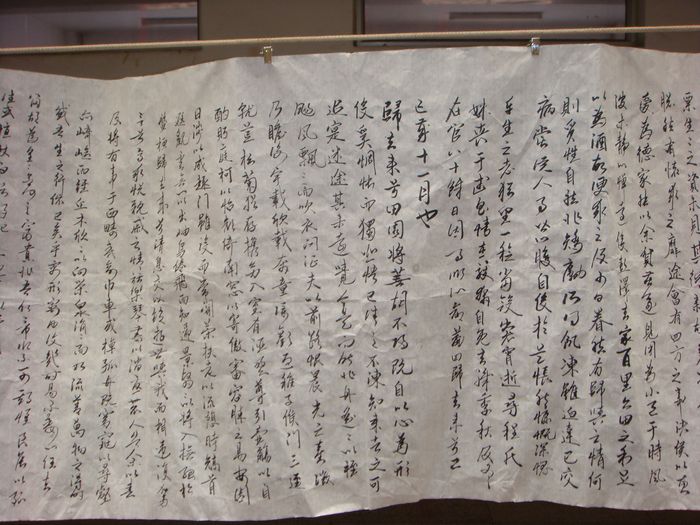 粟生生之資未見其術
脫然有懷求之靡途會有四方之事諸侯以惠
愛為德家叔以余貧苦遂見用為小邑于時風
波未靜心憚遠役彭澤去家百里公田之利足
以為酒故便求之及少日眷然有歸歟之情何
則質性自然非矯勵所得飢凍雖迫違己交
病嘗從人事皆口腹自役於是悵然慷慨深愧
平生之志猶望一稔當斂裳宵逝尋程氏
妹喪于武昌情在駿奔自免去職仲秋至冬
在官八十餘日因事順心命篇曰歸去來兮乙
巳歲十一月也
歸去來兮田園將蕪胡不歸既自以心為形
役奚惆悵而獨悲悟已往之不諫知來者之可
追寔迷途其未遠覺今是而昨非舟遙遙以輕
颺風飄飄而吹衣問征夫以前路恨晨光之熹微
乃瞻衡宇載欣載奔童僕歡迎稚子候門三徑
就荒松菊猶存攜幼入室有酒盈樽引壺觴以自
酌眄庭柯以怡顏倚南窗以寄傲審容膝之易安園
日涉以成趣門雖設而常關策扶老以流憩時矯首
遐觀雲無心以出岫鳥倦飛而知還景翳翳以將入撫孤松
盤桓歸去來兮請息交以絕遊世與我而相遺復駕
言兮焉求悅親戚之情話樂琴書以消憂農人告余以春
及將有事于西疇或命巾車或棹孤舟既窈窕以尋壑
亦崎嶇而經丘木欣欣以向榮泉涓涓而始流善萬物之得時
感吾生之行休已矣乎寓形宇內復幾時曷不委心任去
留胡為遑遑欲何之富貴非吾願帝鄉不可期懷良辰以孤
往或植杖而耘耔